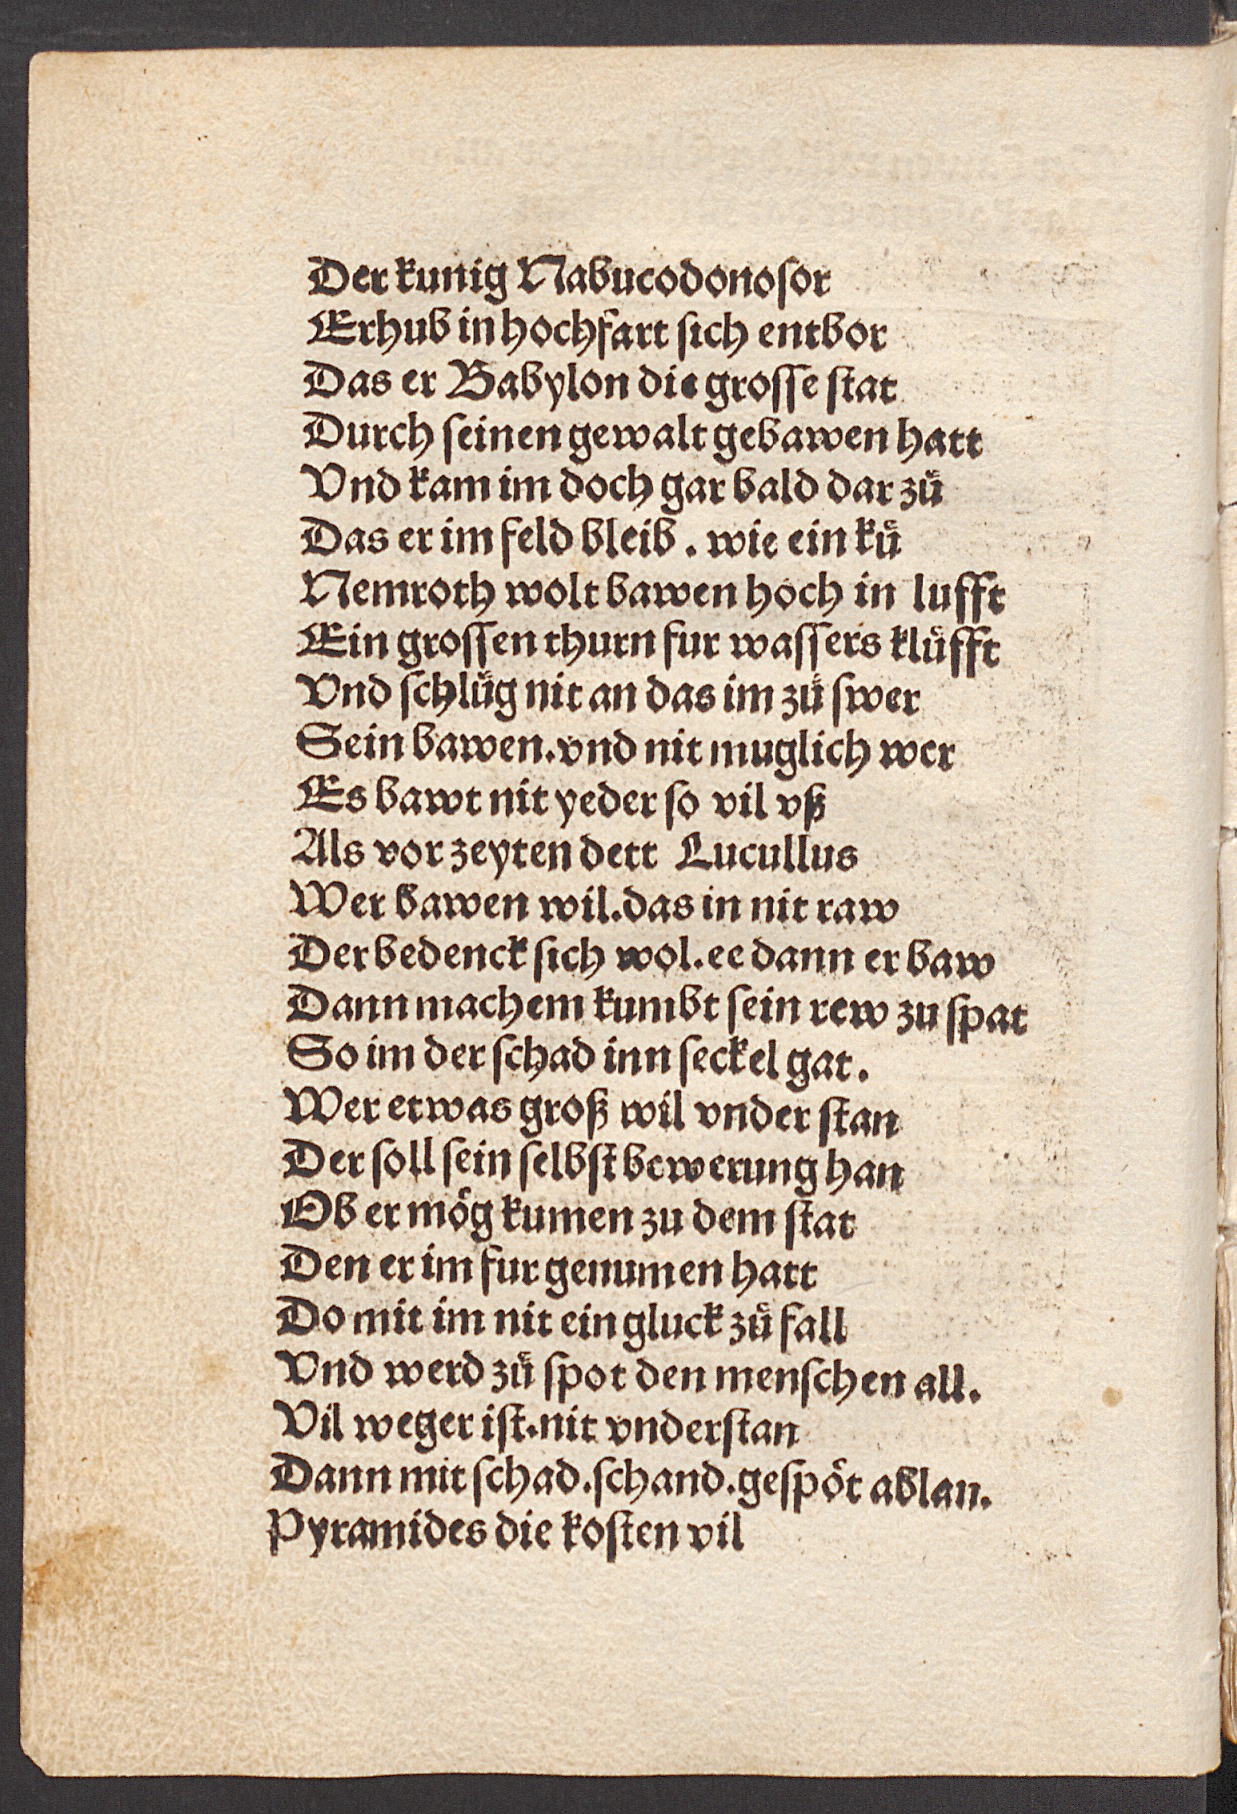 Der kunig Nabucodonoſor
Erhub in hochfart ſich entbor
Das er Babylon die groſſe ſtat
Durch ſeinen gewalt gebawen hatt
Vnd kam im doch gar bald dar zuͤ
Das er im feld bleib . wie ein kuͤ
Nemroth wolt bawen hoch in lufft
Ein groſſen thurn fur waſſers kluͤfft
Vnd ſchluͤg nit an das im zuͤ ſwer
Sein bawen.vnd nit muglich wer
Es bawt nit yeder ſo vil vß
Als vor zeyten dett Lucullus
Wer bawen wil.das in nit raw
Der bedenck ſich wol.ee dann er baw
Dann machem kumbt ſein rew zu ſpat
So im der ſchad inn ſeckel gat.
Wer etwas groß wil vnder ſtan
Der ſoll ſein ſelbſt bewerung han
Ob er moͤg kumen zu dem ſtat
Den er im fur genumen hatt
Do mit im nit ein gluck zuͤ fall
Vnd werd zuͤ ſpot den menſchen all.
Vil weger iſt.nit vnderſtan
Dann mit ſchad.ſchand.geſpoͤt ablan.
Pyramides die koſten vil